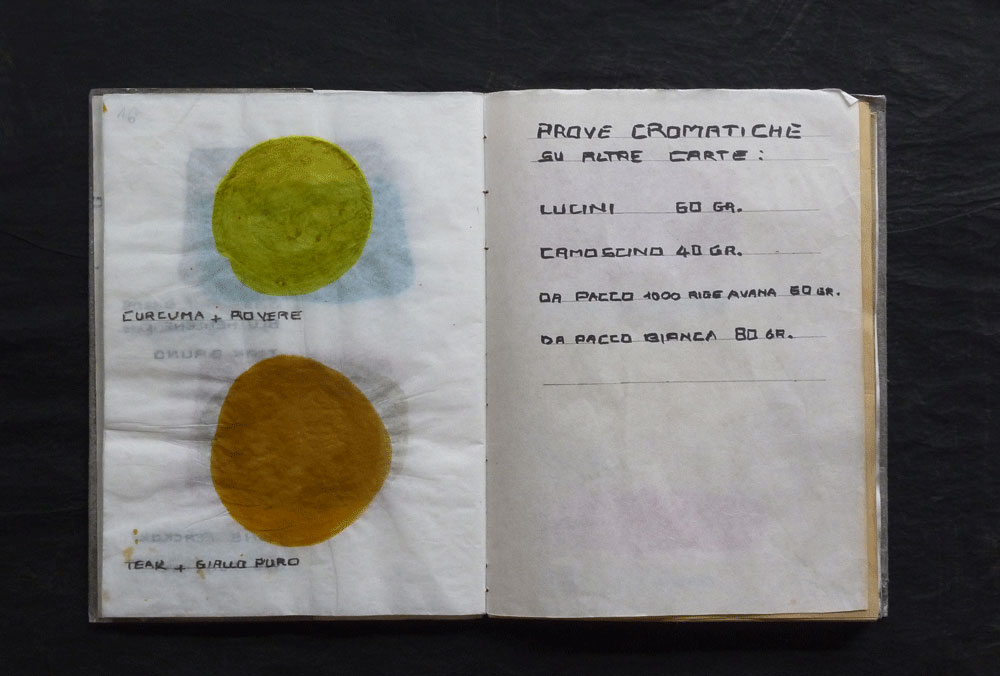 CURCUMA + ROVERE
TEAK + GIALLO PURO
PROVE CROMATICHE
SU ALTRE CARTE :
LUCINI 60 GR.
CAMOSCINO 40 GR.
DA PACCO 1000 RIGE AVANA 60 GR.
DA PACCO BIANCA 80 GR.